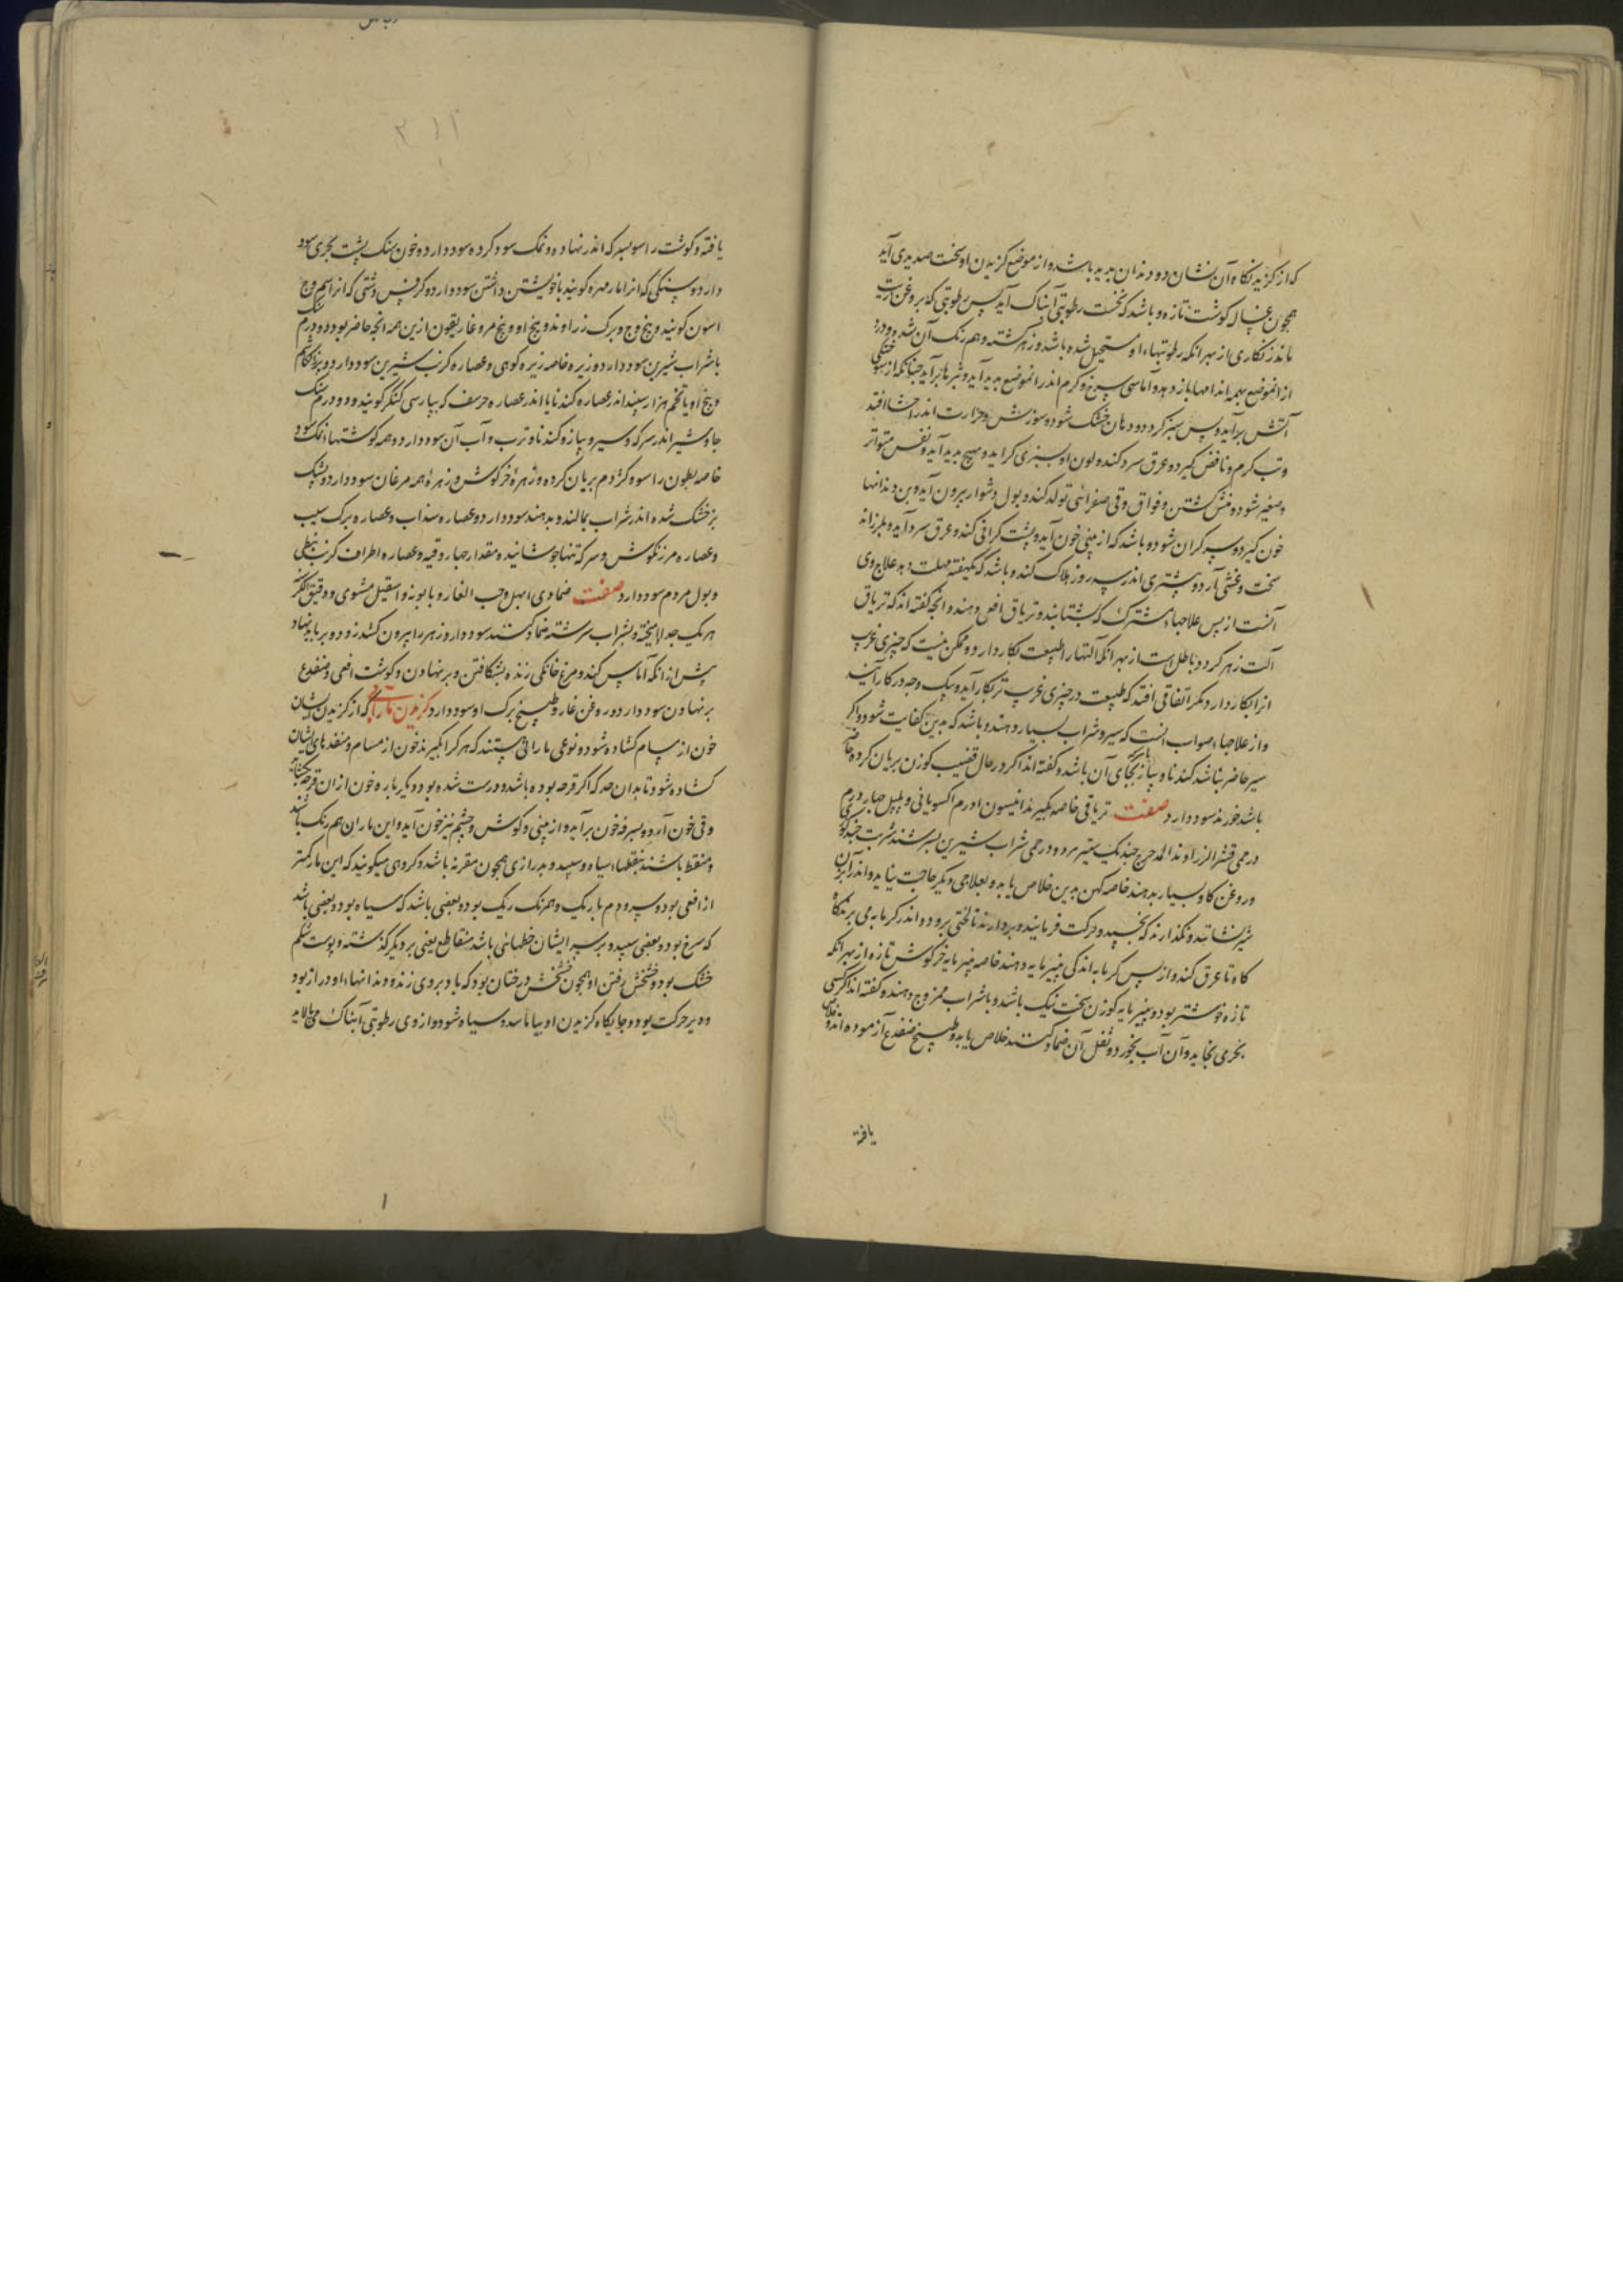 که از گزیدنگاه آن نشان دو دندان پدید باشد و از موضع گزیدن او نخست صدیدی آید
همچون غساله گوشت تازه و باشد که نخست رطوبتی آبناک آید پس رطوبتی که بروغن زیت
ماند زنگاری از بهر انکه رطوبتهاء او مستحیل شده باشد و زهر گشته و هم رنک آن شده و درد
از انموضع بهمه اندامها باز دهد و اماسی سرخ و گرم اندر انموضع پدید آید و بثرها برآید چنانکه از سوختکی
آتش برآید و پس سبز گردد و دهان خشک شود و سوزش و حرارت اندر احشا افتد
و تب گرم و نافض گیرد و عرق سرد کند و لون او بسبزی گراید و تهیج پدید آید و نفس متواتر
و صغیر شود و منش گشتن و فواق و قی صفرائی تولد کند و بول دشوار بیرون آید و بن دندانها
خون گیرد و سر گران شود و باشد که از بینی خون آید و پشت گرانی کند و عرق سرد آید و بلرزاند
سخت و غشی آرد و بیشتری اندر سه روز هلاک کند و باشد که یکهفته مهلت دهد علاج وی
آنست از پس علاجهاء مشترک که بشتابند و تریاق افعی دهند و انچه گفته اند که تریاق
آلت زهر گردد باطل است از بهر انکه آلتها را طبیعت بکار دارد و ممکن نیست که چیزی غریب
انرا بکار دارد مکر اتفاقی افتد که طبیعت در چیزی غریب تر بکار آید و بیک وجه در کار آیند
و از علاجهاء صواب انست که سیر و شراب بسیار دهند و باشد که بدین کفایت شود و اگر
سیر حاضر نباشد کندنا و پیاز بجای آن باشد و گفته اند اگر در حال قضیب گوزن بریان کرده
باشد خورند سود دارد صفت تریاقی خاصه بگیرند انیسون اورم اکسویافی و پلپل چهار درم
درمی قشر الزراوند المدحرج جندبیدستر مر و و درمی شراب شیرین بسرشند شربت چند گوزی
و روغن گاو بسیار بدهند خاصه کهن بدین خلاص یابد و بعلاجی دیگر حاجت نیاید و اندر آبزن
شیر نشانند و نگذارند که بخسپد و حرکت فرمایند و بردارند تا لختی برود و اندر گرمابه می برند گاه
گاه تا عرق کند و از پس گرمابه اندکی پنیرمایه دهند خاصه پنیرمایه خرگوش تازه از بهر انکه
تازه خوشتر بود و پنیرمایه گوزن سخت نیک باشد و باشراب ممزوج دهند و گفته اند اگر کسی
بخرمی بخاید و آن آب بخورد و ثفل آن ضماد کنند خلاص یابد و طبیخ ضفدع آزموده اند و خلاص
یافته
یافته و گوشت راسو بسرکه اندر نهاده و نمک سود کرده سود دارد و خون سنک پشت بحری سود
دارد و سنکی که انرا مار مهره گویند باخویشتن داشتن سود دارد و کرفس دشتی که انرا
اسون گویند و بیخ وج و برگ زراوند و بیخ او و بیخ مر و غاریقون ازین همه انچه حاضر بود دو درم سنک
باشراب شیرین سود دارد و زیره خاصه زیره کوهی و عصاره کرنب شیرین سود دارد
و بیخ او یا تخم هزار سپند اندر عصاره کندنا یا اندر عصاره حرسف که بپارسی کنگر گویند و دو درم سنک
جاوشیر اندر سرکه و سیر و پیاز و کندنا و ترب و آب آن سود دارد و همه گوشتهاء نمک سود
خاصه بطون راسو و کژدم بریان کرده و زهرهٔ خرگوش و زهرهٔ همه مرغان سود دارد و پشک
بز خشک شده اندر شراب بمالند و بدهند سود دارد و عصاره سداب و عصاره برگ سیب
و عصاره مرزنگوش و سرکه تنها جوشانیده مقدار چهار وقیه و عصاره اطراف کرنب نبطی
و بول مردم سود دارد صفت ضمادی ابهل وحب الغار و بابونه و اسقیل مشوی و دقیق الکرسنه
هر یک جدا بیخته و بشراب سرشته ضماد کنند سود دارد و زهر را بیرون کشد زود و بر باید نهاد
پیش از انکه آماس کند و مرغ خانگی زنده بشکافتن و بر نهادن و گوشت افعی و ضفدع
بر نهادن سود دارد و روغن غار و طبیخ برگ او سود دارد گزیدن مارانی که از گزیدن ایشان
خون از مسام گشاده شود و نوعی مارانی هستند که هر کرا بگیرند خون از مسام و منفذهای ایشان
گشاده شود تا بدان حد که اگر قرحه بوده باشد و درست شده بود دیگر باره خون از ان قرحه بگشاید
و قی خون آرد و بسرفه خون برآید و از بینی و گوش و چشم نیز خون آید و این ماران هم رنک باشند
و منقط باشند بنقطهاء سیاه و سپید و بدرازی همچون مقرنه باشد و گروهی میگویند که این مار کمتر
از افعی بود و سر و دم باریک و همرنک ریک بود و بعضی باشد که سیاه بود و بعضی باشد
که سرخ بود و بعضی سپید و بر سر ایشان خطهائی باشد متقاطع یعنی بر دیگر گذشته و پوست شکم
خشک بود و خشخش رفتن او همچون خشخش درختان بود که باد بروی زند و دندانهاء او دراز بود
و دیر حرکت بود و جایگاه گزیدن او بیاماسد و سیاه شود و از وی رطوبتی آبناک می پالاید